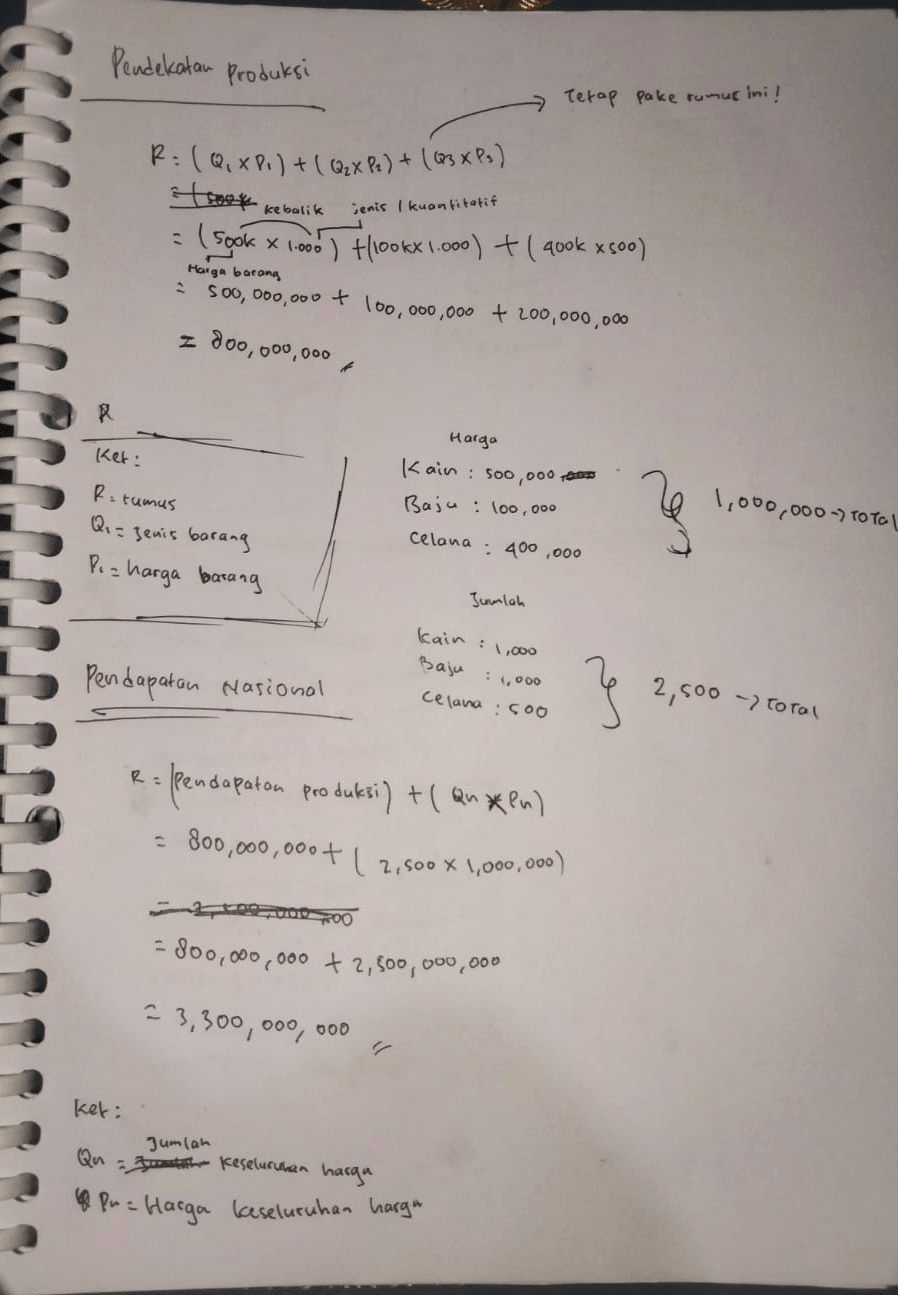 Pendekatan Produksi
Tetap pake rumus ini!
R = (Q1 x P1) + (Q2 x P2) + (Q3 x P3)
kebalik jenis / kuantitatif
= (500k x 1.000) + (100k x 1.000) + (400k x 500)
Harga barang
= 500,000,000 + 100,000,000 + 200,000,000
= 800,000,000
R
Ket:
R = rumus
Q1 = Jenis barang
P1 = harga barang
Harga
Kain : 500,000
Baju : 100,000
Celana : 400,000
1,000,000 -> TOTAL
Jumlah
Kain : 1,000
Baju : 1,000
Celana : 500
2,500 -> TOTAL
Pendapatan Nasional
R = (Pendapatan produksi) + (Qn x Pn)
= 800,000,000 + (2,500 x 1,000,000)
= 800,000,000 + 2,500,000,000
= 3,300,000,000
Ket:
Qn = Jumlah keseluruhan harga
Pn = Harga keseluruhan harga